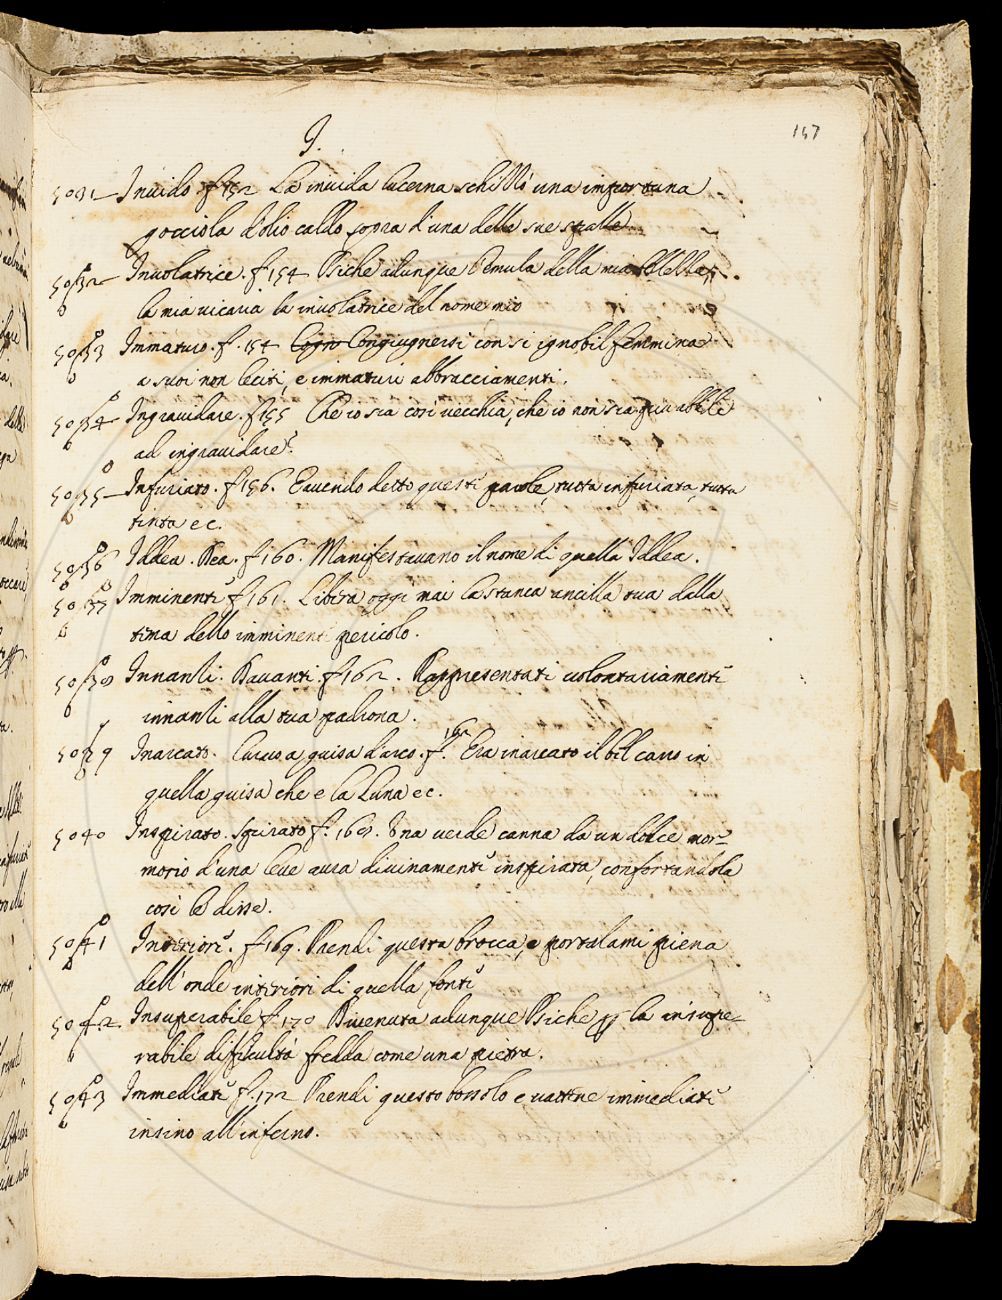 I.
147
5031 Inuido f. 152 La inuida lucerna schizzò una importuna
gocciola d'olio caldo sopra d'una delle sue spalle
5032 Inuolatrice. f. 154 Psiche adunque l'emula della mia
la mia uicaria la inuolatrice del nome mio
5033 Immaturo. f. 154 Congiugnersi con si ignobil femmina
a suoi non leciti, e immaturi abbracciamenti.
5034 Ingrauidare. f. 155 Che io sia così vecchia, che io non sia più abbile
ad ingrauidare?
5035 Infuriato. f. 156. Eauendo detto questi parole, tutta infuriata, tutta
tinta ec.
5036 Iddea. Dea. f. 160. Manifestauano il nome di quella Iddea.
5037 Imminenti f. 161. Libera oggi mai la stanca ancilla tua dalla
tema dello imminenti pericolo.
5038 Innanti. Dauanti. f. 162. Rappresentati uolontariamenti
innanti alla tua padrona.
5039 Inarcato. Curuo a guisa d'arco. f. 162 Era inarcato il bel carro in
quella guisa che e la Luna ec.
5040 Inspirato. Spirato f. 168. Una uerde canna da un dolce mor-
morio d'una leue aura diuinamenti inspirata, confortandola
così le disse.
5041 Interiori. f. 169. Prendi questa brocca, e portalami piena
dell'onde interiori di quella fonti
5042. Insuperabile f. 170 Diuenuta adunque Psiche la insupe-
rabile difficultà fredda come una pietra.
5043 Immediati f. 172 Prendi questo bossolo e uattene immediati
insino all'inferno.